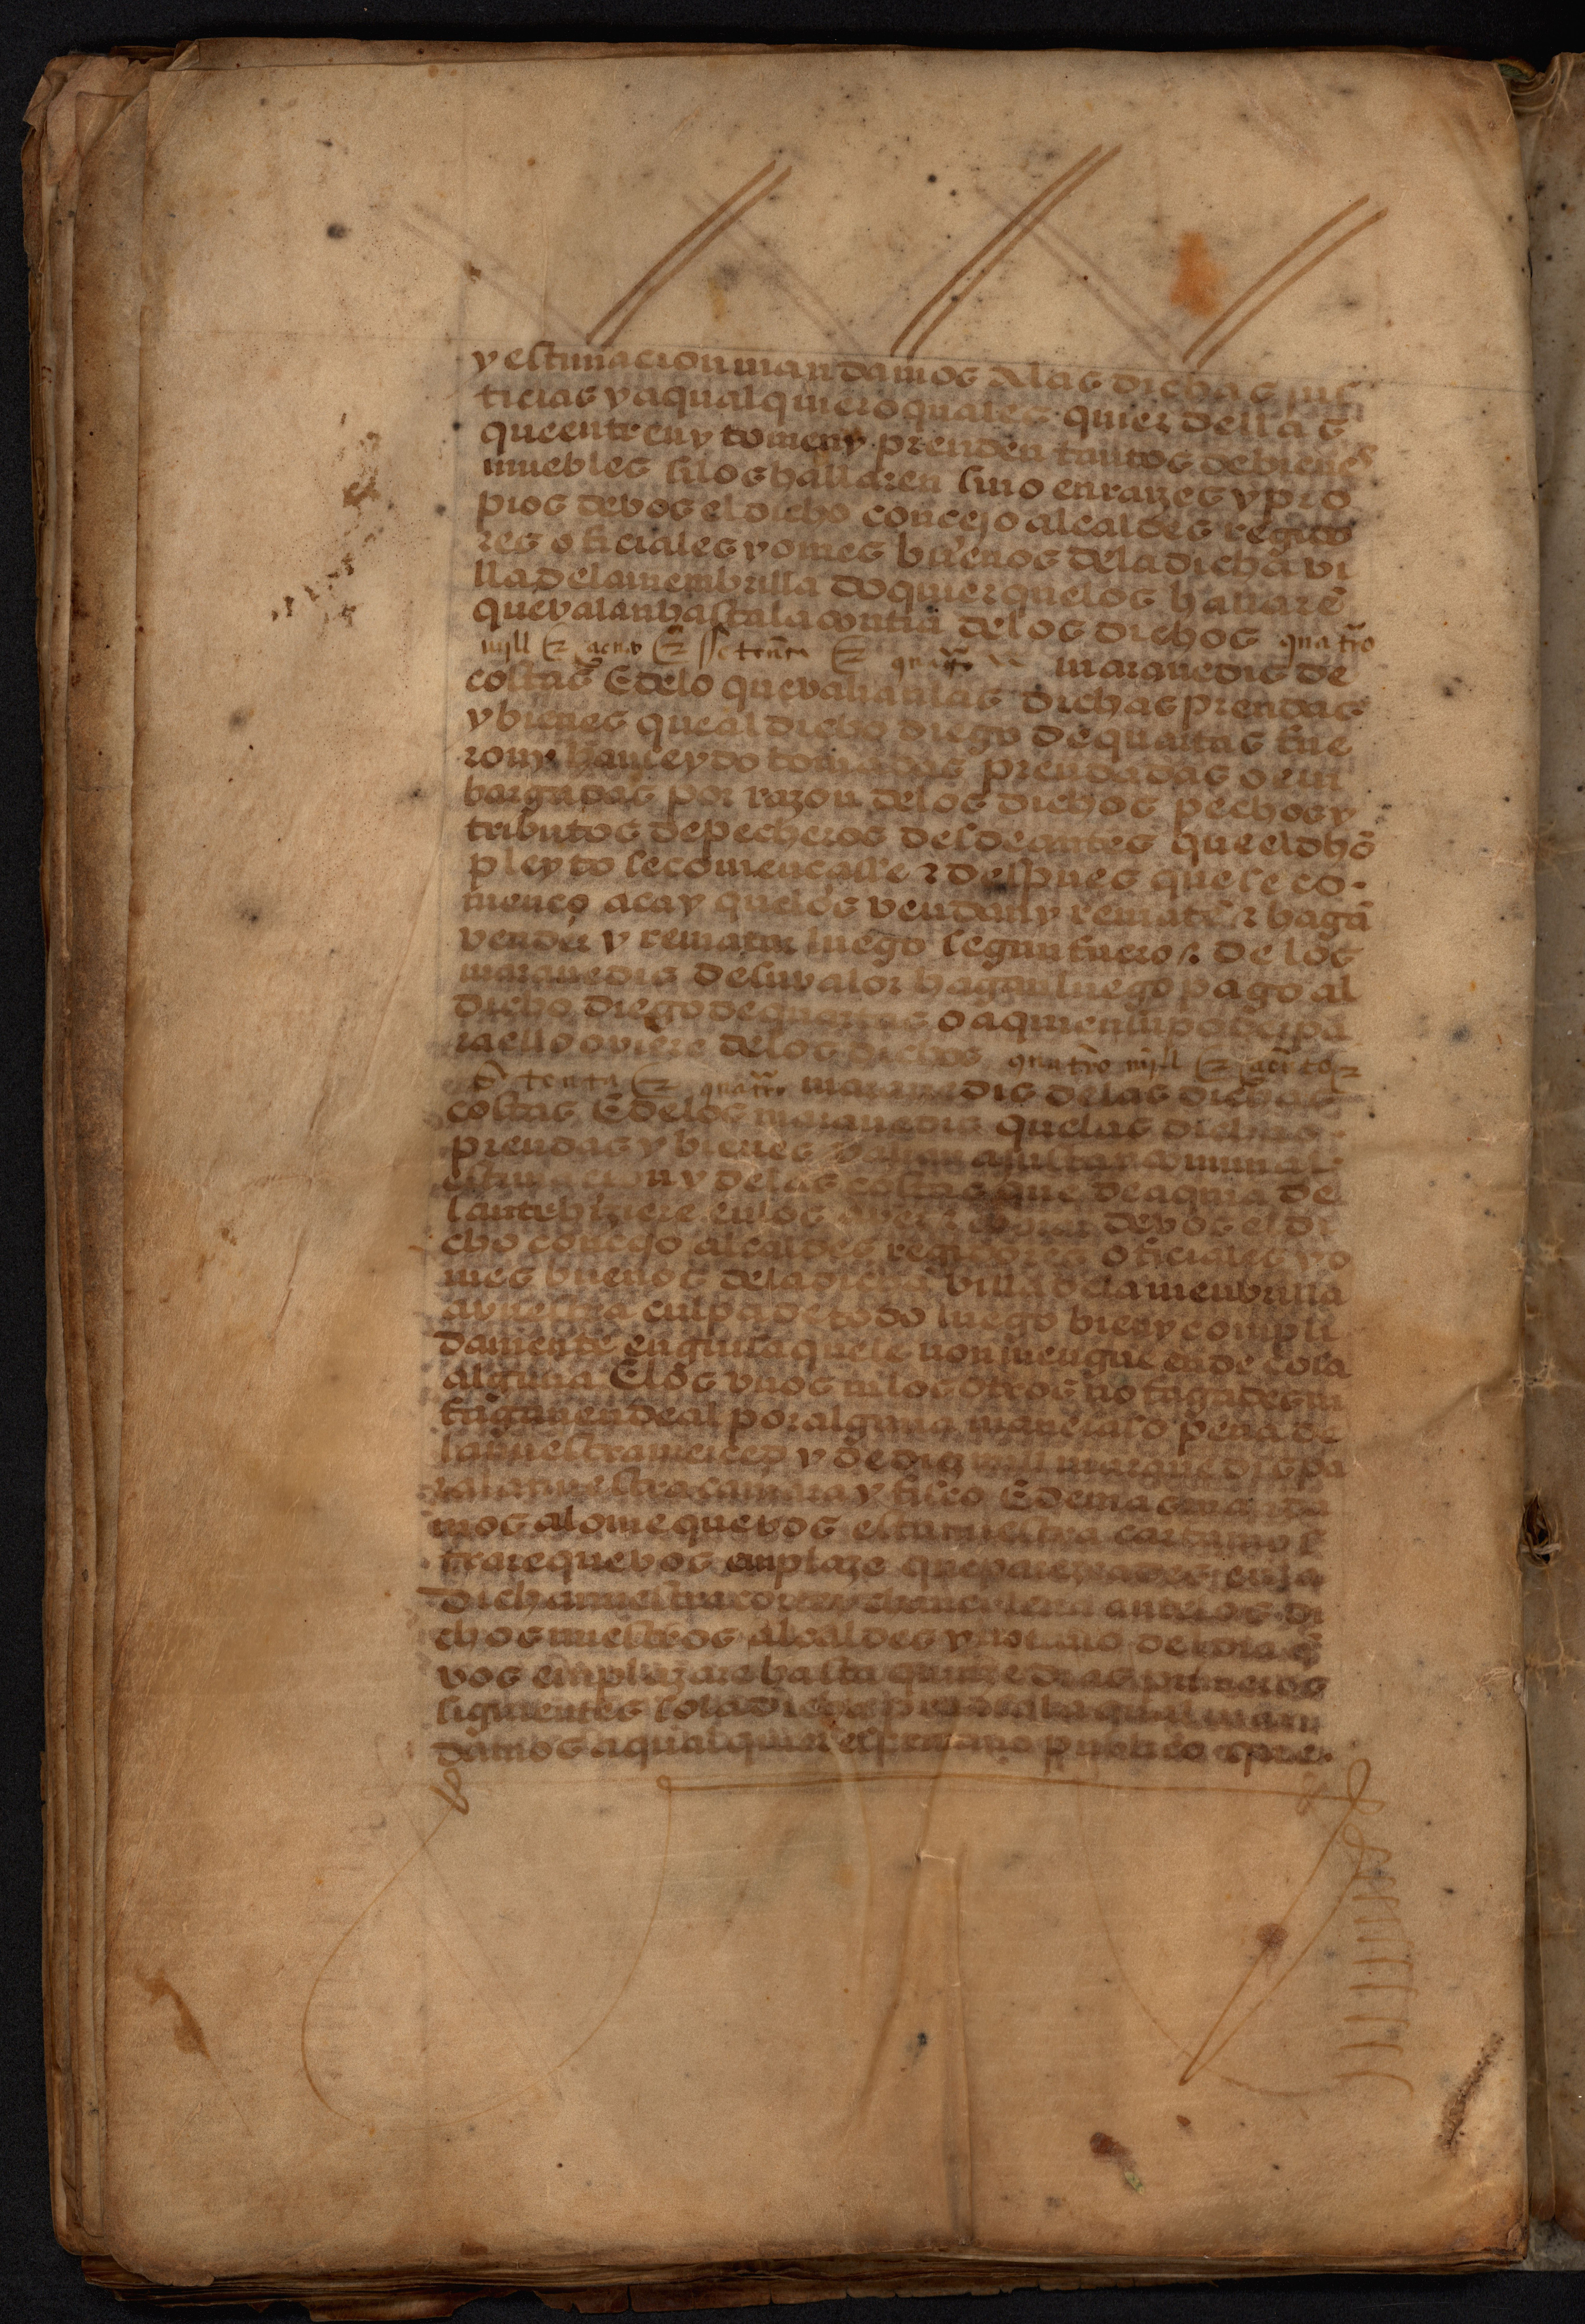 y estimacion mandamos A las dichas jus
ticias y a qual quier o quales quier dellas
que entren y tomen y prenden tantos de bienes
muebles si los hallaren sino en rayzes y pro
pios de vos el dicho concejo alcaldes regido
res oficiales y omes buenos de la dicha vi
lla de la membrilla do quier que los hallarē
que valan hasta la contia de los dichos quatro
mjll & çiento & setenta & quatro maravedis de
costas E de lo que valian las dichas prendas
y bienes que al dicho diego de quartas fue
ron y han seydo tomadas prendadas o em
bargadas por razon de los dichos pechos y
tributos de pecheros desde antes que el dhō
pleyto se començasse & despues que se co
menço aca y que los vendan y rematē & hagā
vender y rematar luego segun fuero & de los
maravedis de su valor hagan luego pago al
dicho diego de quartas o a quien su poder pa
ra ello oviere de los dichos quatro mjll & çiento &
setenta & quatro maravedis de las dichas
costas E de los maravedis que las dichas
prendas y bienes valian a justa comunal
estimacion y de las costas que de aqui a de
lante hiziere en los aver & cobrar de vos el di
cho concejo alcaldes regidores oficiales y o
mes buenos de la dicha villa de la menbrilla
a vuestra culpa de todo luego bien y compli
damente en guisa que le non mengue ende cosa
alguna E los vnos ni los otros no fagades ni
fagan ende al por alguna manera so pena de
la nuestra merced y de diez mill maravedis pa
ra la nuestra camara y fisco E demas manda
mos al ome que vos esta nuestra carta mos
trare que vos enplaze que parezcades en la
dicha nuestra corte y chancilleria ante los di
chos nuestros alcaldes y notario del dia q̄
vos emplazare hasta quinze dias primeros
siguientes so la dicha pena so la qual man
damos a qualquier escrivano publico que